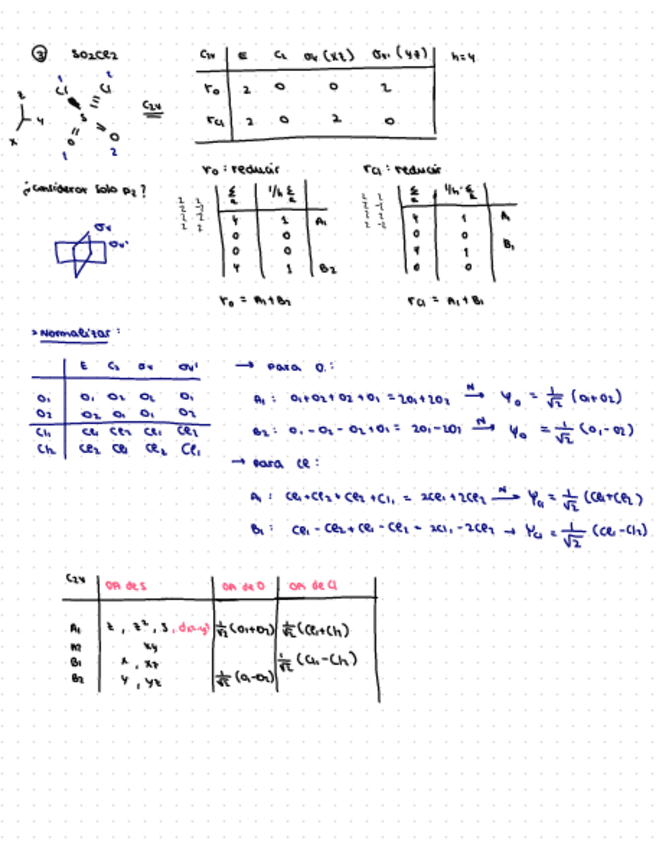 ③ SO2Cl2
C2v E C2 σv (xz) σv' (yz) h=4
Γo 2 0 0 2
Γcl 2 0 2 0
1 2
Cl Cl
S
O O
1 2
z
y
x
C2v
¿considerar solo pz?
σv
σv'
Γo : reducir
Σ 1/h Σ
4 1 A1
0 0
0 0
4 1 B2
Γo = A1+B2
Γcl : reducir
Σ 1/h·Σ
4 1 A1
0 0
4 1 B1
0 0
Γcl = A1+B1
> Normalizar :
E C2 σv σv'
O1 O1 O2 O2 O1
O2 O2 O1 O1 O2
Cl1 Cl1 Cl2 Cl1 Cl2
Cl2 Cl2 Cl1 Cl2 Cl1
→ Para O:
A1 : O1+O2+O2+O1 = 2O1+2O2 N→ Ψo = 1/√2 (O1+O2)
B2 : O1-O2-O2+O1 = 2O1-2O2 N→ Ψo = 1/√2 (O1-O2)
→ Para Cl :
A1 : Cl1+Cl2+Cl2+Cl1 = 2Cl1+2Cl2 N→ Ψcl = 1/√2 (Cl1+Cl2)
B1 : Cl1-Cl2+Cl1-Cl2 = 2Cl1-2Cl2 → Ψcl = 1/√2 (Cl1-Cl2)
C2v OA de S OA de O OA de Cl
A1 z, z², s, 1/√2 (O1+O2) 1/√2 (Cl1+Cl2)
A2 xy
B1 x, xz 1/√2 (Cl1-Cl2)
B2 y, yz 1/√2 (O1-O2)